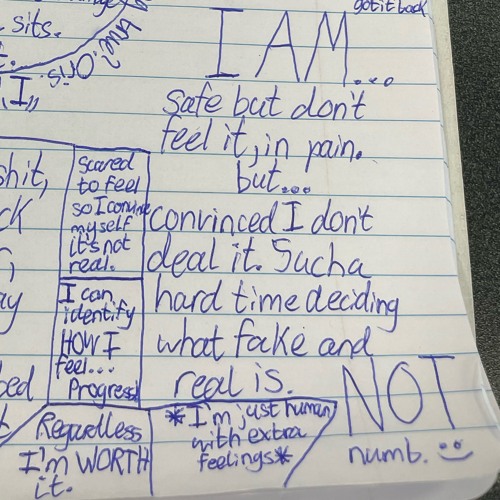 got it back
sits.
I AM...
true?
Or is
"I"
safe but don't
feel it, in pain.
but...
convinced I don't
deal it. Such a
hard time deciding
what fake and
real is.
NOT
numb.
shit,
scared
to feel
so I convince
myself
it's not
real.
I can
identify
HOW I
feel...
Progress!
Regardless
I'm WORTH
it.
*I'm just human
with extra
feelings*